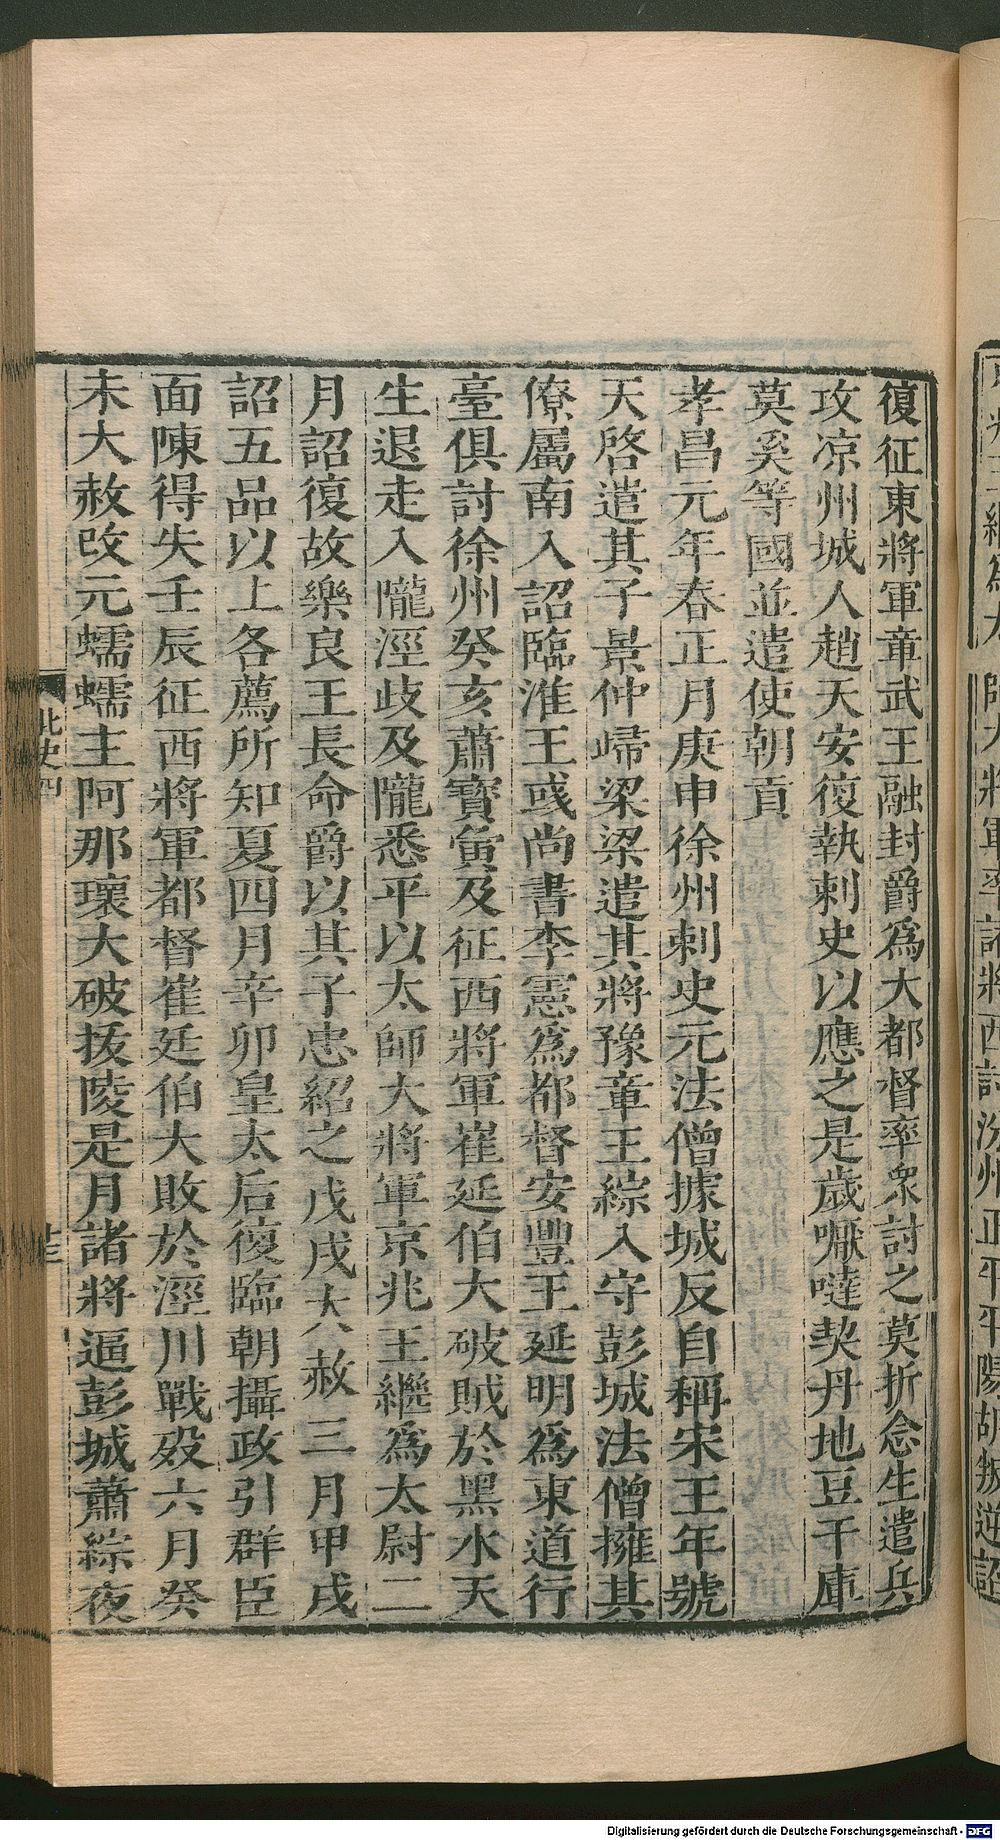 復征東將軍章武王融封爵爲大都督率衆討之莫折念生遣兵
攻凉州城人趙天安復執刺史以應之是歲嚈噠契丹地豆干庫
莫奚等國並遣使朝貢
孝昌元年春正月庚申徐州刺史元法僧據城反自稱宋王年號
天啓遣其子景仲歸梁梁遣其將豫章王綜入守彭城法僧擁其
僚屬南入詔臨淮王彧尚書李憲爲都督安豐王延明爲東道行
臺俱討徐州癸亥蕭寶夤及征西將軍崔延伯大破賊於黑水天
生退走入隴涇歧及隴悉平以太師大將軍京兆王繼爲太尉二
月詔復故樂良王長命爵以其子忠紹之戊戌大赦三月甲戌
詔五品以上各薦所知夏四月辛卯皇太后復臨朝攝政引群臣
面陳得失壬辰征西將軍都督崔延伯大敗於涇川戰歿六月癸
未大赦改元蠕蠕主阿那瓌大破拔陵是月諸將逼彭城蕭綜夜
北史四
師大將軍率諸將西討汾州正平平陽胡叛逆詔
Digitalisierung gefördert durch die Deutsche Forschungsgemeinschaft - DFG